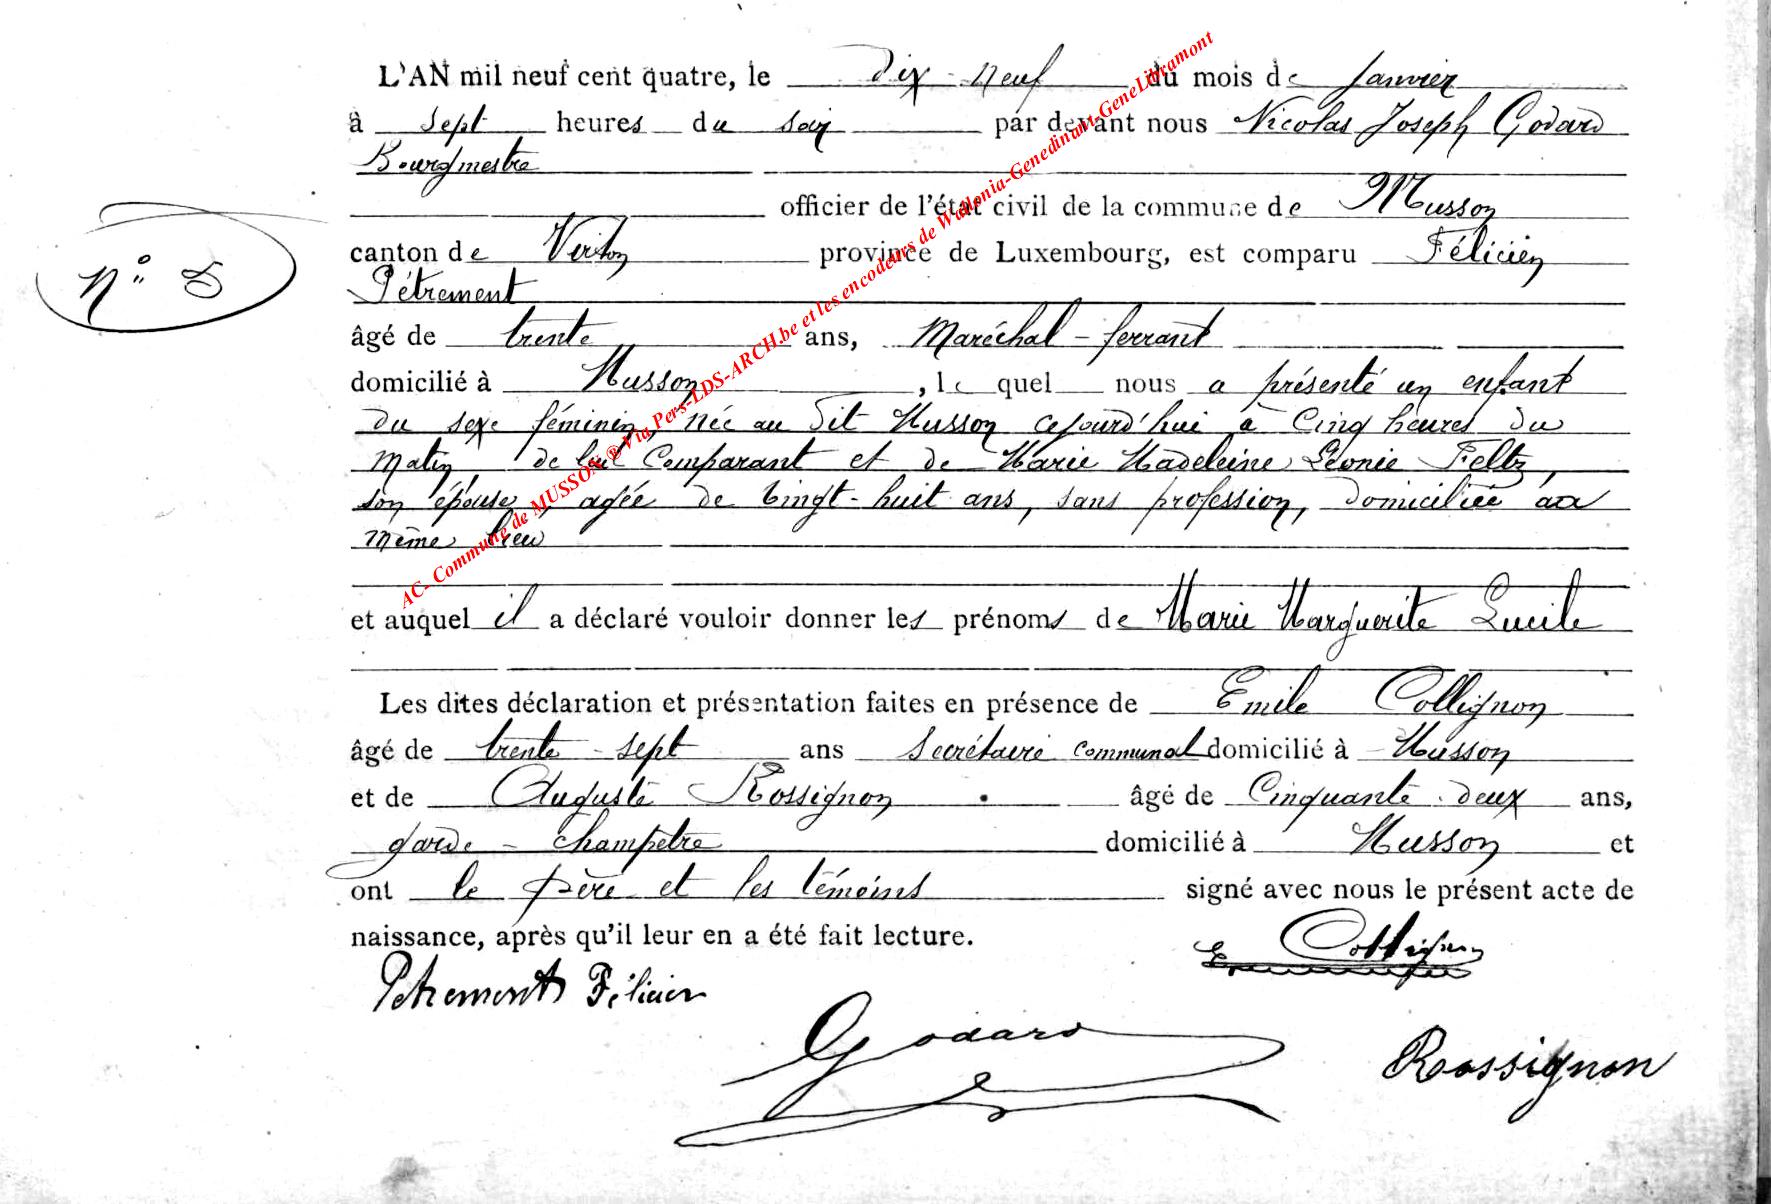 L'AN mil neuf cent quatre, le dix-neuf du mois de janvier
à sept heures du soir par devant nous Nicolas Joseph Godard
Bourgmestre
officier de l'état civil de la commune de Musson
canton de Virton province de Luxembourg, est comparu Félicien
Pétrement
âgé de trente ans, Maréchal-ferrant
domicilié à Musson, lequel nous a présenté un enfant
du sexe féminin, née au dit Musson cejourd'hui à cinq heures du
matin, de lui comparant et de Marie Madeleine Léonie Feltz,
son épouse, agée de vingt-huit ans, sans profession, domiciliée au
même lieu
et auquel il a déclaré vouloir donner les prénoms de Marie Marguerite Lucile
Les dites déclaration et présentation faites en présence de Emile Collignon
âgé de trente-sept ans Secrétaire communal domicilié à Musson
et de Auguste Rossignon âgé de Cinquante-deux ans,
garde-champêtre domicilié à Musson et
ont le père et les témoins signé avec nous le présent acte de
naissance, après qu'il leur en a été fait lecture.
E Collignon
Petrement Félicien
Godard
Rossignon
N° 5
AC- Commune de MUSSON ® Via Pers-LDS-ARCH.be et les encodeurs de Wallonia-Genedinant-GeneLibramont